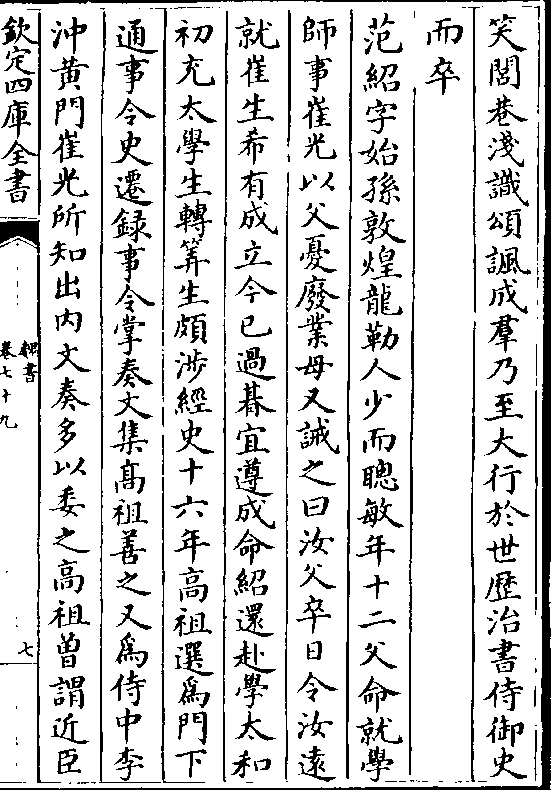 笑閭巷淺識頌諷成羣乃至大行於世歴治書侍御史
而卒
范紹字始孫敦煌龍勒人少而聰敏年十二父命就學
師事崔光以父憂廢業母又誡之曰汝父卒日令汝遠
就崔生希有成立今已過朞宜遵成命紹還赴學太和
初充太學生轉筭生頗涉經史十六年高祖選爲門下
通事令史遷録事令掌奏文集高祖善之又爲侍中李
沖黄門崔光所知出内文奏多以委之高祖曾謂近臣
欽定四庫全書
魏書
卷七十九
七